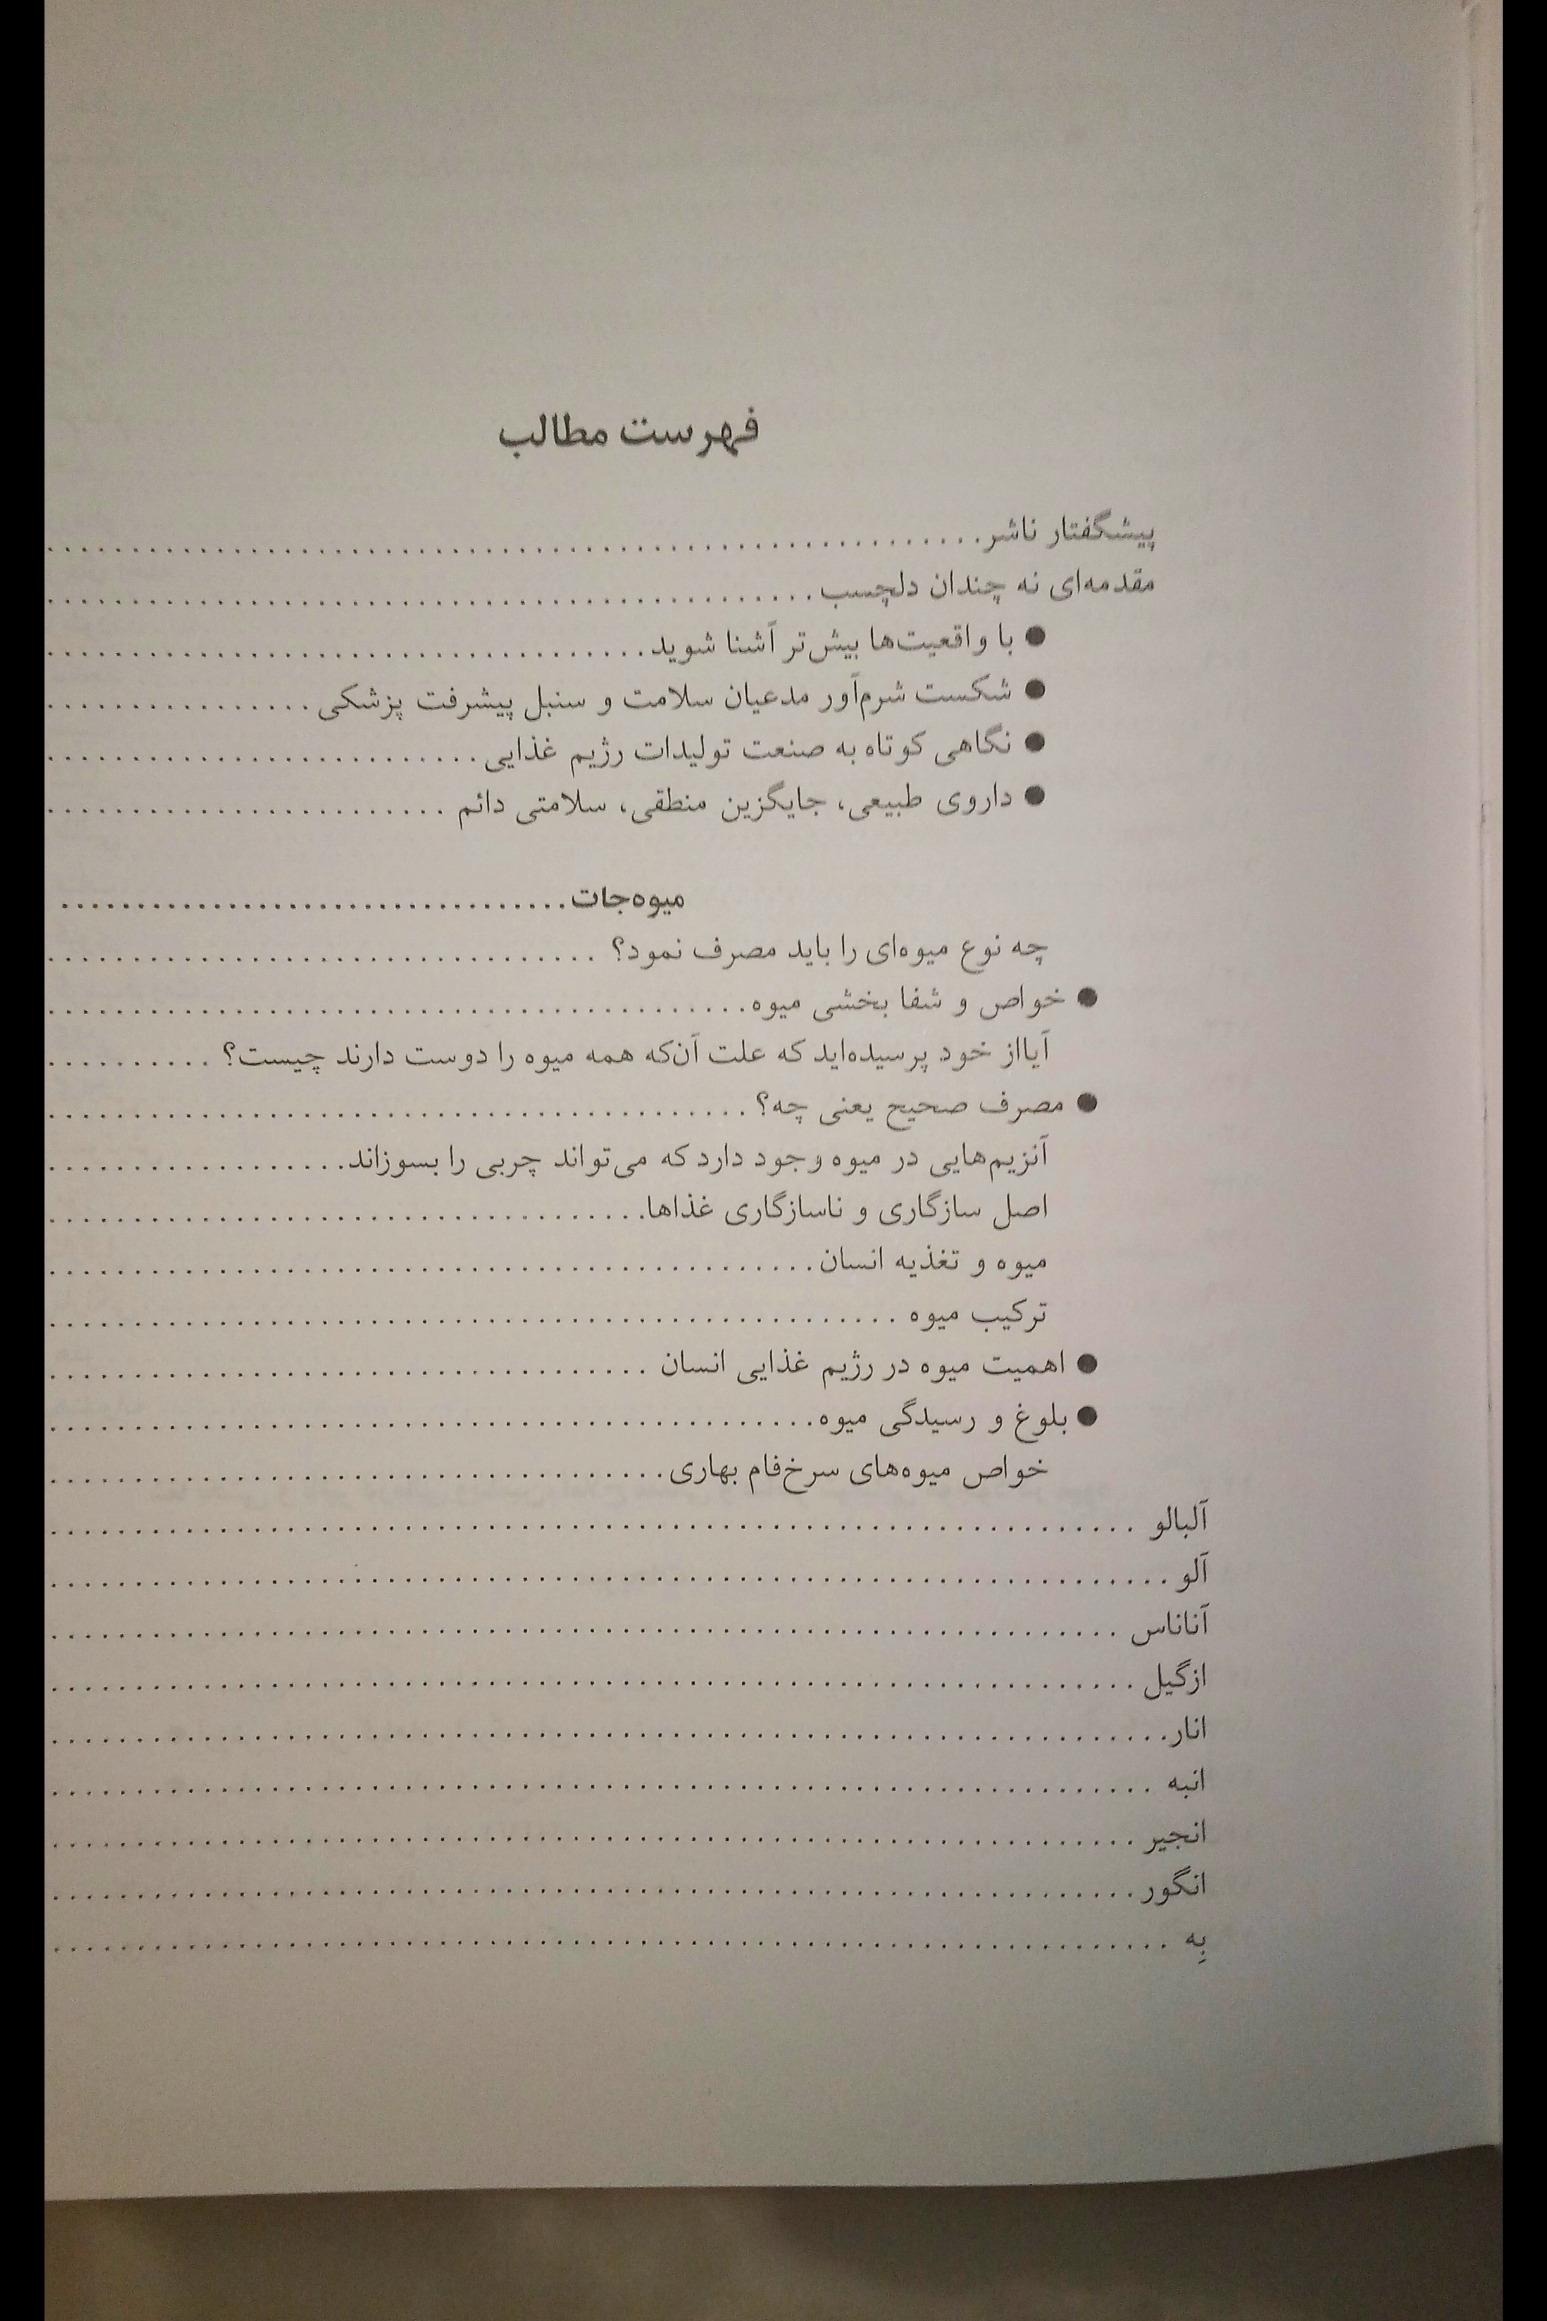 فهرست مطالب
پیشگفتار ناشر
مقدمه‌ای نه چندان دلچسب
● با واقعیت‌ها بیش‌تر آشنا شوید
● شکست شرم‌آور مدعیان سلامت و سنبل پیشرفت پزشکی
● نگاهی کوتاه به صنعت تولیدات رژیم غذایی
● داروی طبیعی، جایگزین منطقی، سلامتی دائم
میوه‌جات
چه نوع میوه‌ای را باید مصرف نمود؟
● خواص و شفا بخشی میوه
آیااز خود پرسیده‌اید که علت آن‌که همه میوه را دوست دارند چیست؟
● مصرف صحیح یعنی چه؟
آنزیم‌هایی در میوه وجود دارد که می‌تواند چربی را بسوزاند
اصل سازگاری و ناسازگاری غذاها
میوه و تغذیه انسان
ترکیب میوه
● اهمیت میوه در رژیم غذایی انسان
● بلوغ و رسیدگی میوه
خواص میوه‌های سرخ‌فام بهاری
آلبالو
آلو
آناناس
ازگیل
انار
انبه
انجیر
انگور
بِه